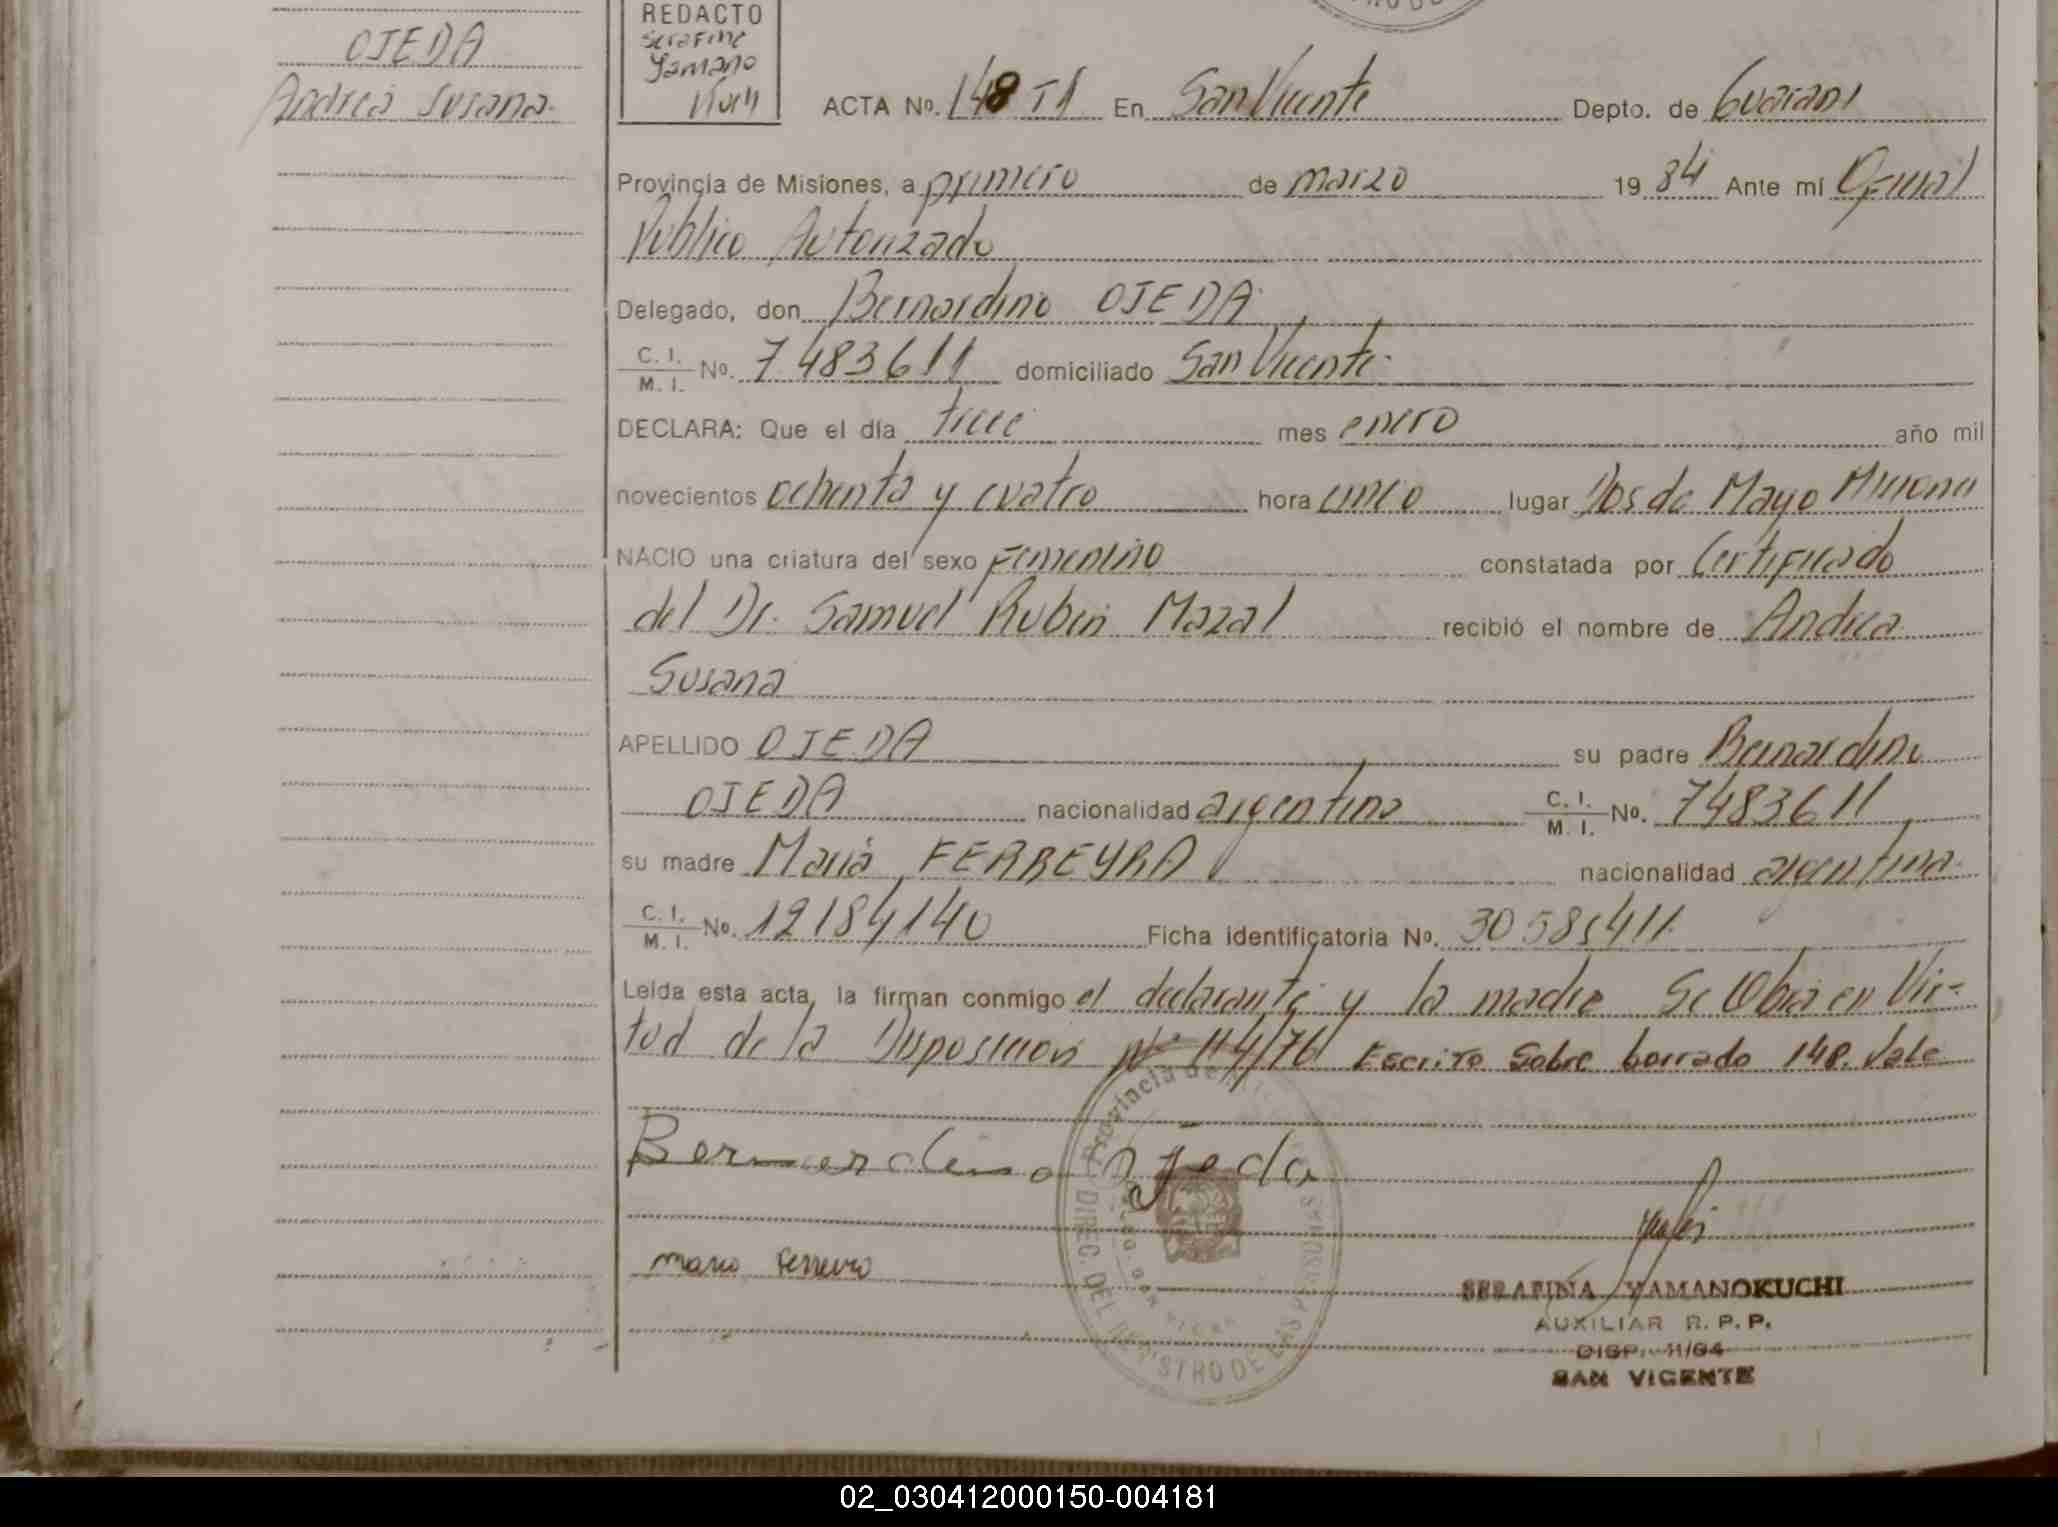 OJEDA
Andrea Susana
REDACTO
Serafina
Yamano
Kuchi
ACTA Nº. 148 T1 En San Vicente Depto. de Guaraní
Provincia de Misiones, a primero de marzo 19 84 Ante mí Oficial
Público Autorizado
Delegado, don Bernardino OJEDA
C. I. / M. I. Nº. 7483611 domiciliado San Vicente
DECLARA: Que el día trece mes enero año mil
novecientos ochenta y cuatro hora cinco lugar Dos de Mayo Misiones
NACIO una criatura del sexo Femenino constatada por Certificado
del Dr. Samuel Rubén Mazal recibió el nombre de Andrea
Susana
APELLIDO OJEDA su padre Bernardino
OJEDA nacionalidad argentino C. I. / M. I. Nº. 7483611
su madre María FERREYRA nacionalidad argentina
C. I. / M. I. Nº. 12184140 Ficha identificatoria Nº. 30585411
Leída esta acta, la firman conmigo el declarante y la madre Se Obra en Vir-
tud de la Disposición Nº 114/76 Escrito Sobre borrado 148. Vale
Bernardino Ojeda
Provincia de
DIREC. DEL REGISTRO DE LAS PERSONAS
SERAFINA YAMANOKUCHI
AUXILIAR R. P. P.
SAN VICENTE
02_030412000150-004181